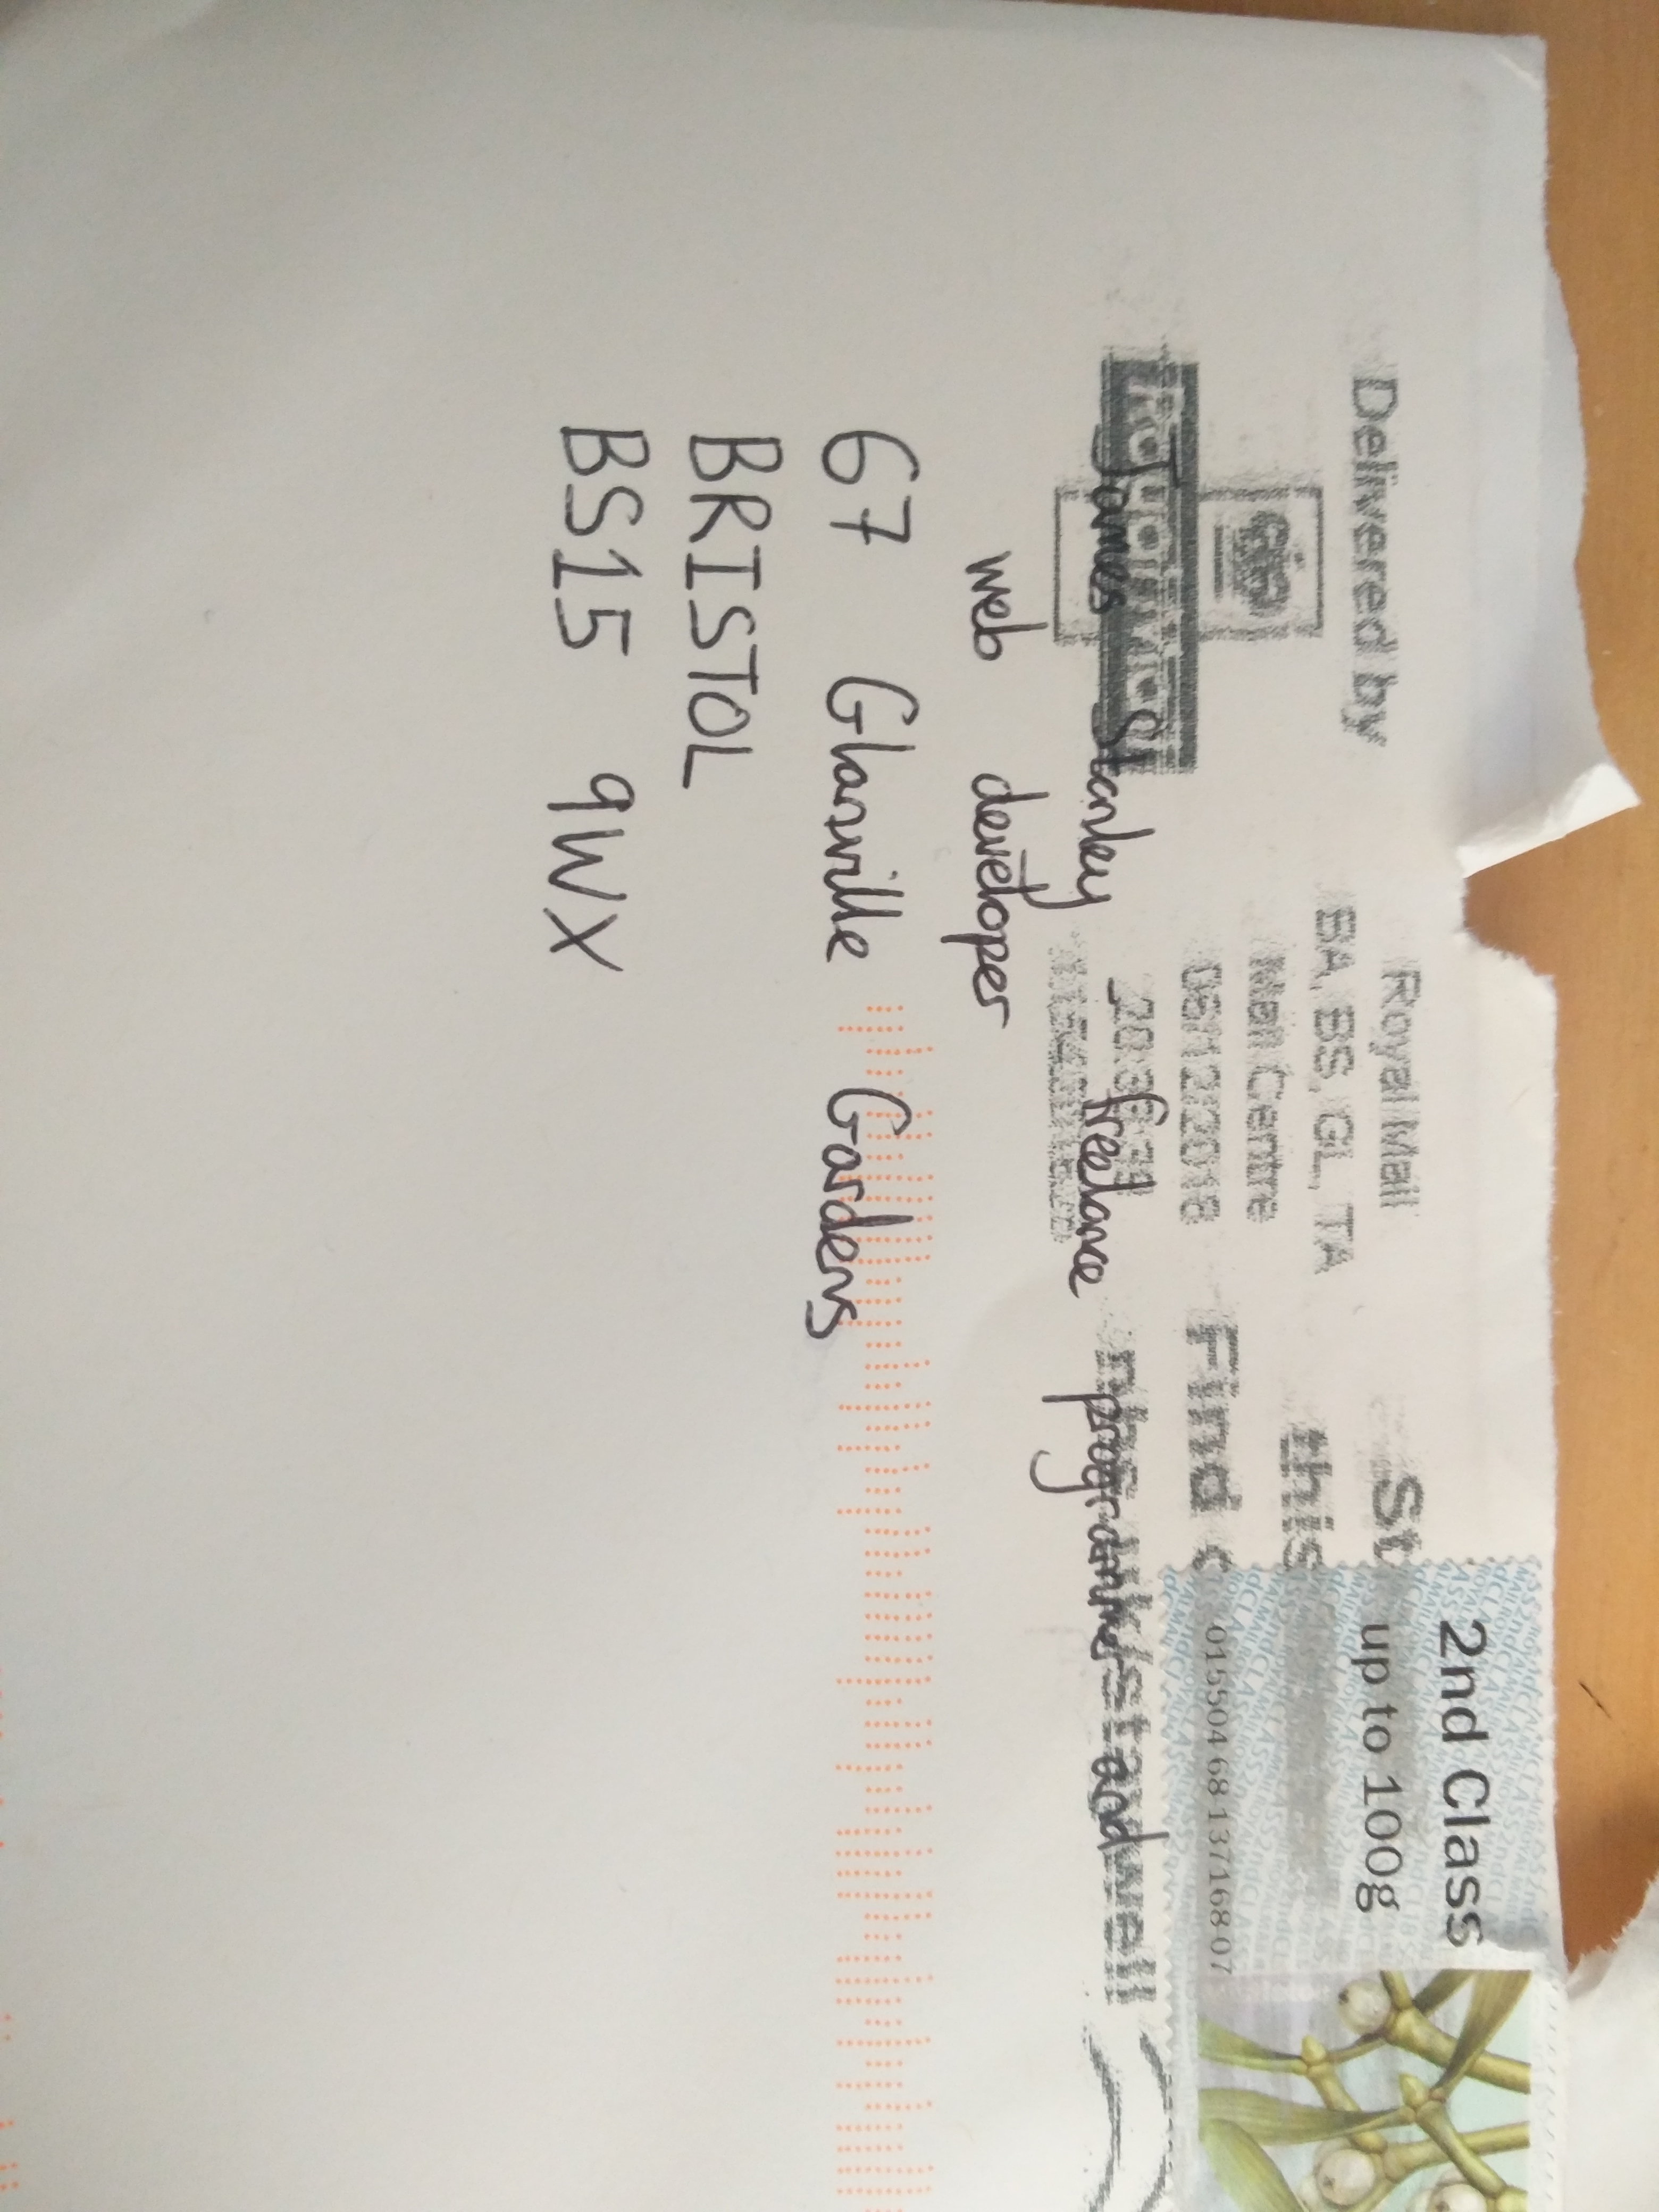 Delivered by
Royal Mail
Royal Mail
BA, BS, GL, TA
Mail Centre
06122018
St
this
Find
2nd Class
up to 100g
0155046813716807
James Stanley freelance programmer and
web developer
67 Glanville Gardens
BRISTOL
BS15 9WX